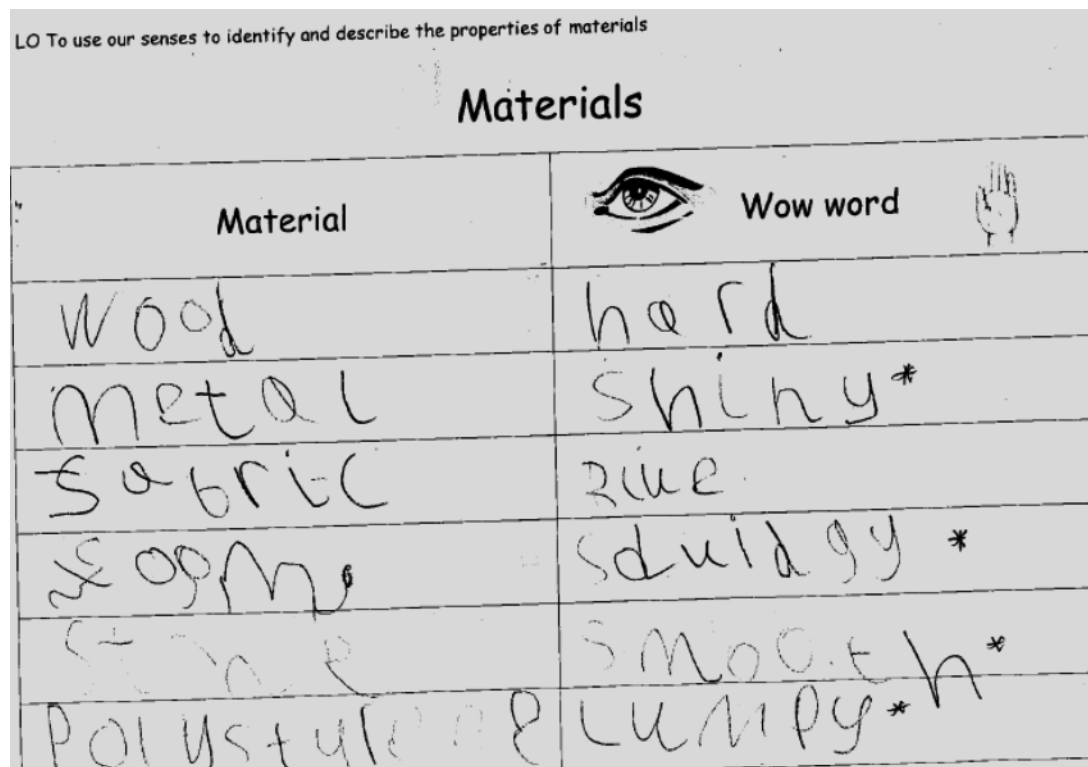 LO To use our senses to identify and describe the properties of materials
Materials
Material Wow word
wood hard
metal shiny*
fabric
foam squidgy *
stone smooth*
Polystyrene Lumpy*